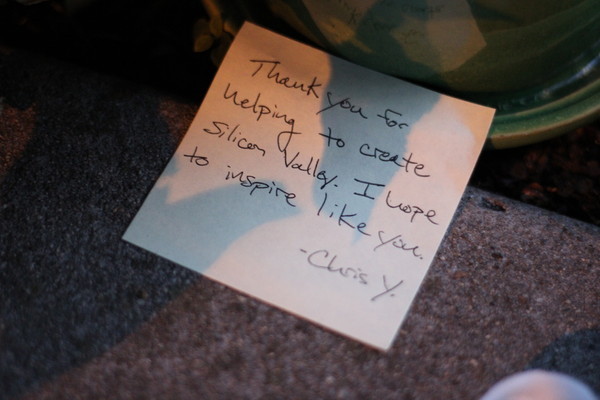 Thank you for
helping to create
Silicon Valley. I hope
to inspire like you.
-Chris Y.